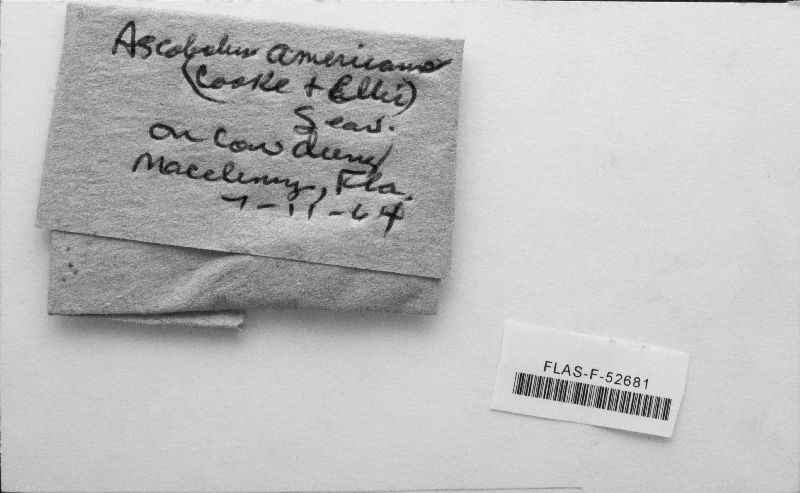 Ascobolus americanus
(Cooke + Ellis)
Seav.
on cow dung
Macclenny, Fla.
7-11-64
FLAS-F-52681